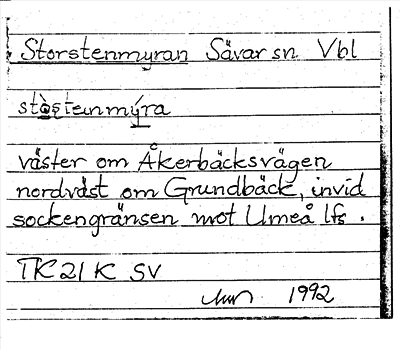 Storstenmyran Sävar sn Vbl
väster om Åkerbäcksvägen
nordväst om Grundbäck, invid
sockengränsen mot Umeå lfs.
TK 21 K SV
1992